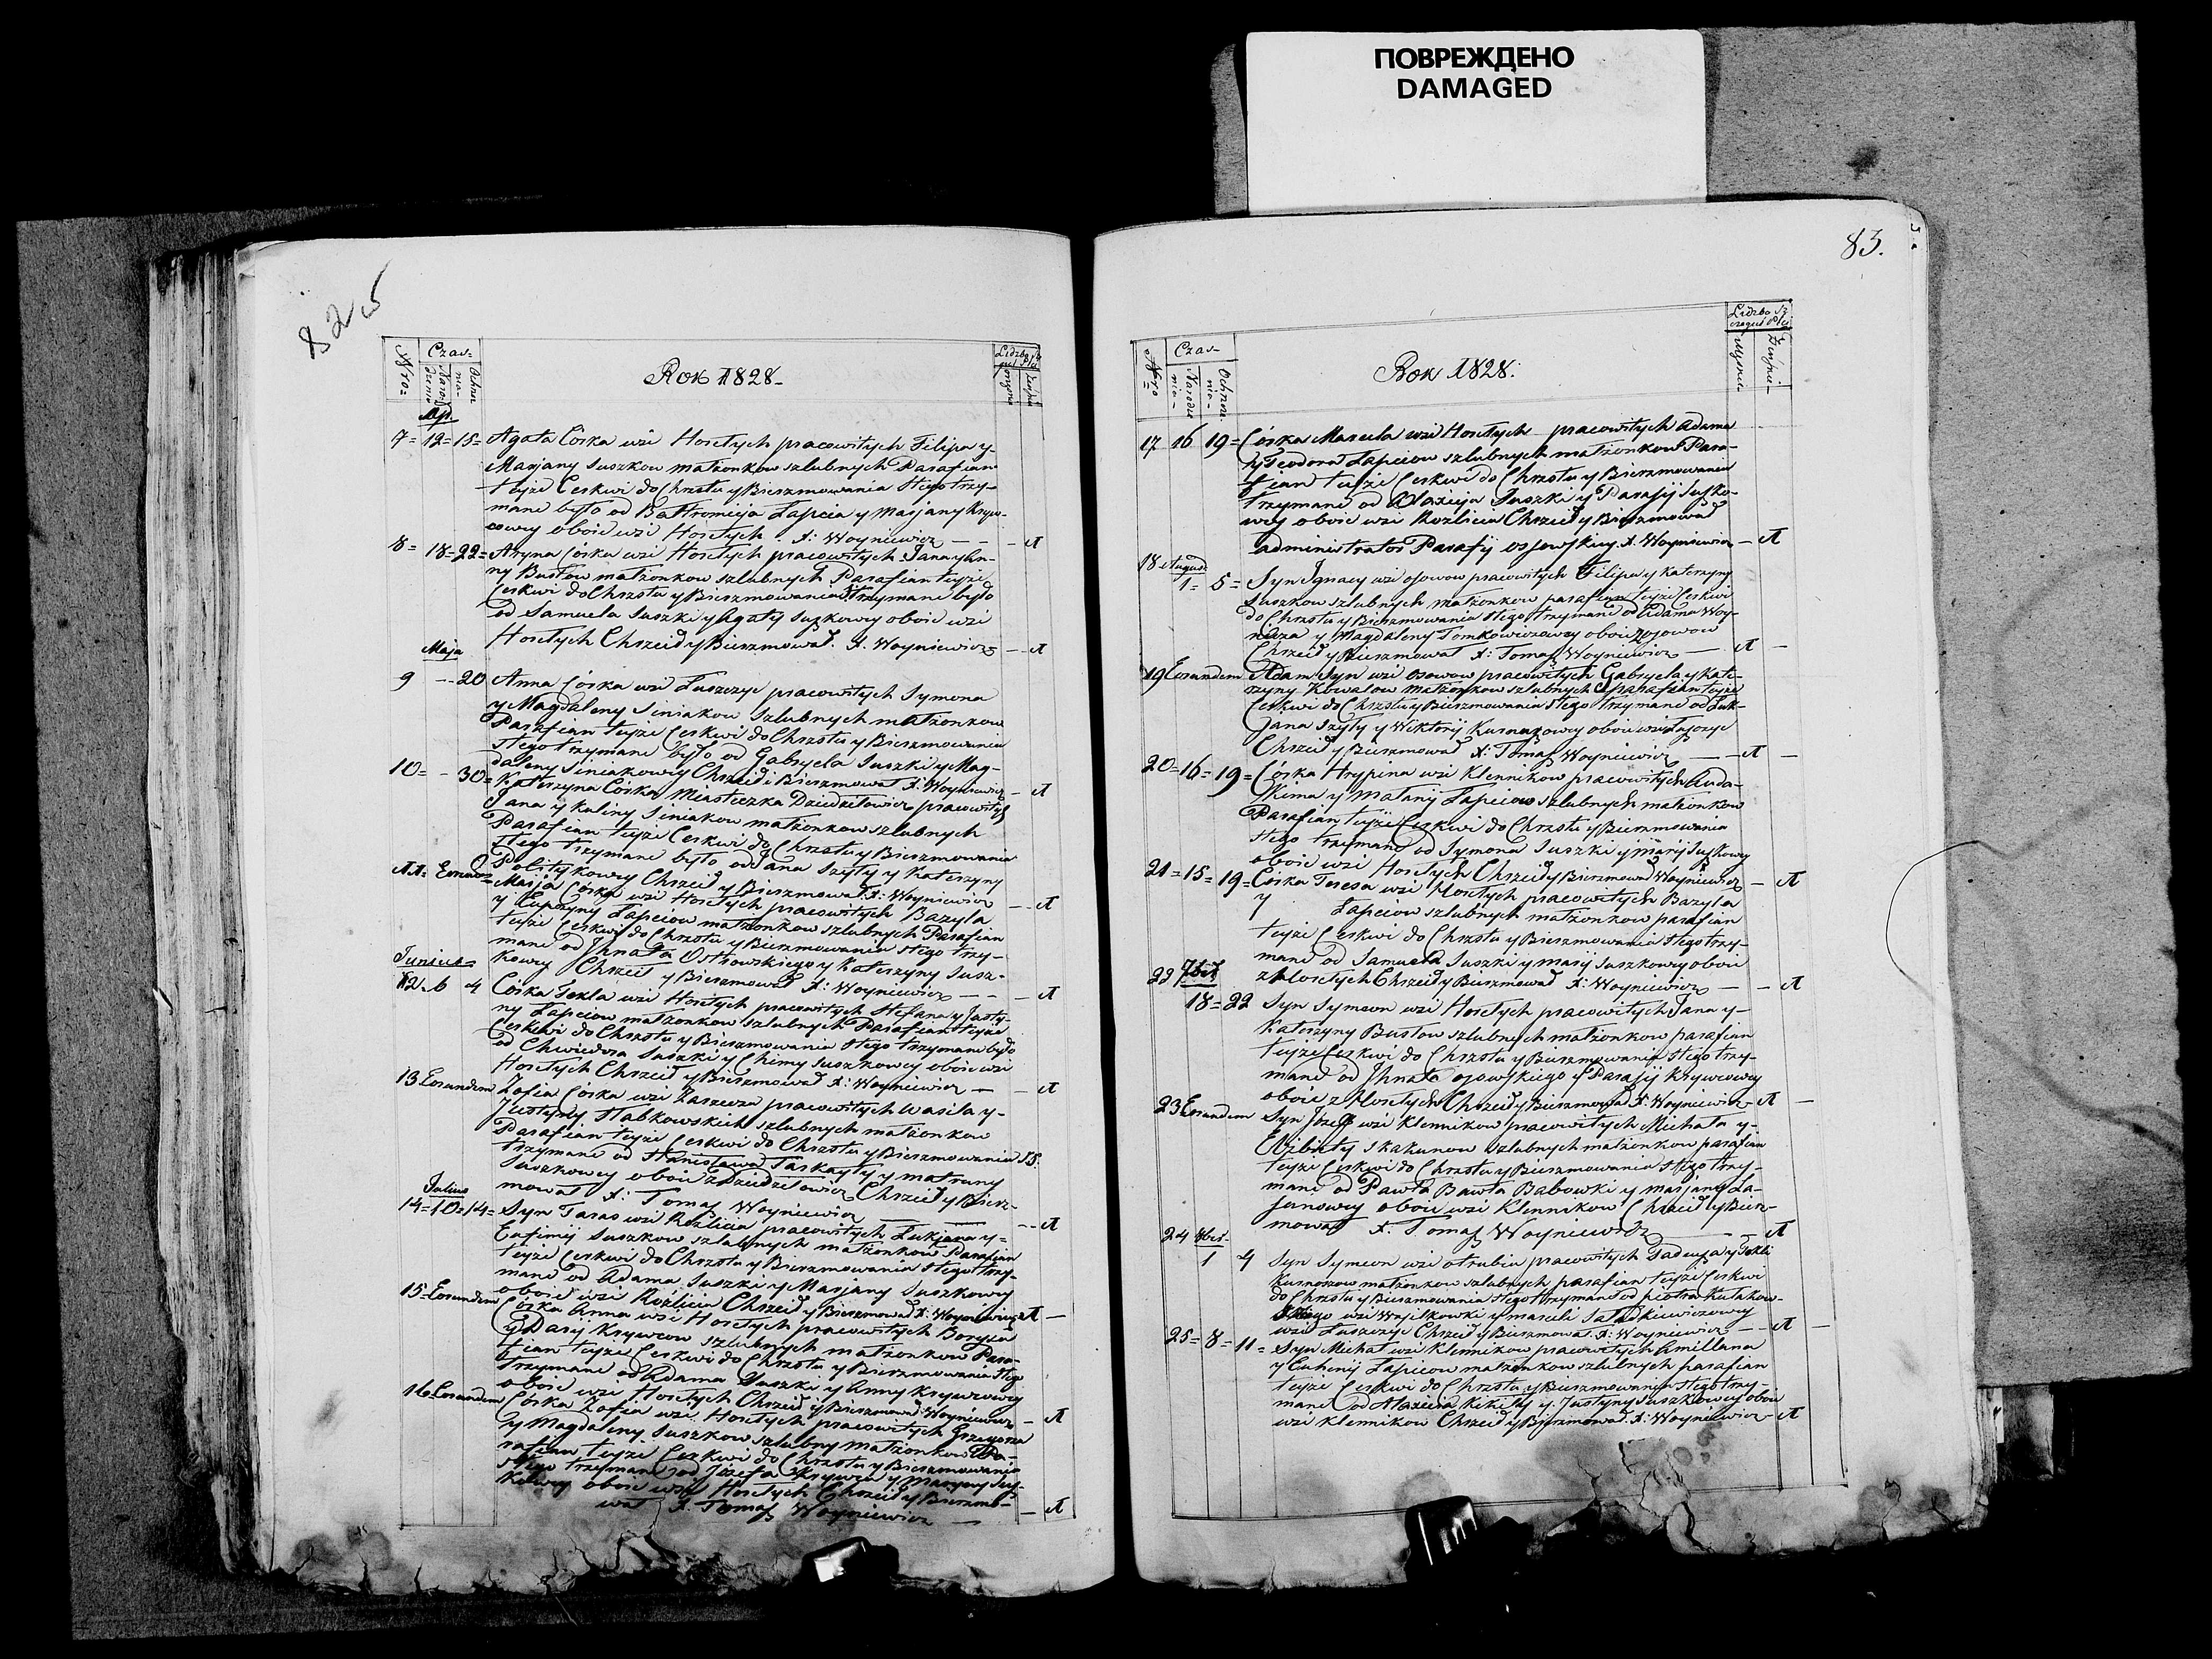 ПОВРЕЖДЕНО
DAMAGED
82
83.
Nro
Czas
Rok 1828
Ap.
7 = 12 = 15 = Agata Córka wsi Hostych pracowitych Filipa y
Marjany Suszkow małżonkow szlubnych Parafian
teyże Cerkwi do Chrztu y Bierzmowania tego trzy-
mane było od Bartłomieja Łapcia y Marjany Kryw-
cowey oboie wsi Hostych X: Woyniewicz — A
8 = 18 = 22 = Aryna Córka wsi Hostych pracowitych Jana y An-
ny Busłow małżonkow szlubnych Parafian teyże
Cerkwi do Chrztu y Bierzmowania trzymane było
od Samuela Suszki y Agaty Suszkowey oboie wsi
Hostych Chrzcił y Bierzmował. X. Woyniewicz — A
Maja
9 — 20 Anna Córka wsi Łuszczyc pracowitych Symona
y Magdaleny Siniakow szlubnych małżonkow
Parafian teyże Cerkwi do Chrztu y Bierzmowania
tego trzymane było od Gabryela Suszki y Mag-
daleny Siniakowey Chrzcił i Bierzmował X. Woyniewicz — A
10 = - 30 = Katerzyna Córka Miasteczka Dziedziłowicz pracowitych
Jana y Kaliny Siniakow małżonkow szlubnych
Parafian teyże Cerkwi do Chrztu y Bierzmowania
tego trzymane było od Jana Szyły y Katerzyny
Politykowey Chrzcił y Bierzmował X: Woyniewicz — A
11 = Eorundem Marja Córka wsi Hostych pracowitych Bazyla
y Łapciow małżonkow szlubnych Parafian
teyże Cerkwi do Chrztu y Bierzmowania tego trzy-
mane od Ihnata Ostrowskiego y Katerzyny Susz-
kowey Chrzcił y Bierzmował X: Woyniewicz — A
Junius
12 6 4 Córka Tekla wsi Hostych pracowitych Stefana y Justy-
ny Łapciow małżonkow szlubnych Parafian teyże
Cerkwi do Chrztu y Bierzmowania tego trzymane było
od Chwiedora Suszki y Chimy Suszkowey oboie wsi
Hostych Chrzcił y Bierzmował X: Woyniewicz — A
13 Eorundem Zofia Córka wsi pracowitych Wasila y
Justyny Słabkowskich szlubnych małżonkow
Parafian teyże Cerkwi do Chrztu y Bierzmowania
trzymane od Stanisława y Matruny
Suszkowey oboie z Dziedziłowicz Chrzcił y Bierz-
mował X: Tomasz Woyniewicz — A
Julius
14 = 10 = 14 = Syn Taras wsi Rozlicia pracowitych Łukjana y
Eufimij Suszkow szlubnych małżonkow Parafian
teyże Cerkwi do Chrztu y Bierzmowania tego trzy-
mane od Adama Suszki y Marjany Suszkowey
oboie wsi Rozlicia Chrzcił y Bierzmował X: Woyniewicz A —
15 = Eorundem Córka Anna wsi Hostych pracowitych Boryza
y Darij Krywcow szlubnych małżonkow Para-
fian teyże Cerkwi do Chrztu y Bierzmowania tego
trzymane od Adama Suszki y Anny Krywcowey
oboie wsi Hostych Chrzcił y Bierzmował Woyniewicz — A
16 Eorundem Córka Zofia wsi Hostych pracowitych Grzegorza
y Magdaleny Suszkow szlubny małżonkow Pa-
rafian teyże Cerkwi do Chrztu y Bierzmowania
tego trzymane od Józefa Krywca y Maryny Susz-
kowey oboie wsi Hostych Chrzcił y Bierzmo-
wał X. Tomasz Woyniewicz — A
Nro
Czas
Rok 1828.
17 16 19 = Córka Marcela wsi Hostych pracowitych Adama
y Teodora Łapciow szlubnych małżonkow Para-
fian teyże Cerkwi do Chrztu y Bierzmowania
trzymane od Suszki y Parasij Suszko-
wey oboie wsi Rozlicia Chrzcił y Bierzmował
administrator Parafij X. Woyniewicz — A
18 August
1 = 5 = Syn Ignacy wsi Osowow pracowitych Filipa y Katerzyny
Suszkow szlubnych małżonkow parafian teyże Cerkwi
do Chrztu y Bierzmowania tego trzymane od Adama Woy-
y Magdaleny Tomkowiczowey oboie z Osowow
Chrzcił y Bierzmował X: Tomasz Woyniewicz — A —
19 Eorundem Adam Syn wsi Osowow pracowitych Gabryela y Kate-
rzyny Kowalow małżonkow szlubnych parafian teyże
Cerkwi do Chrztu y Bierzmowania tego trzymane od Łuk-
jana Szyły y Wiktorij oboie
Chrzcił y Bierzmował X: Tomasz Woyniewicz — A —
20 = 16 = 19 = Córka Hrypina wsi Klennikow pracowitych Auda-
kima y Małanij Łapciow szlubnych małżonkow
Parafian teyże Cerkwi do Chrztu y Bierzmowania
tego trzymane od Symona Suszki y Marij Suszkowey
oboie wsi Hostych Chrzcił y Bierzmował Woyniewicz — A
21 = 15 = 19 = Córka Teresa wsi Hostych pracowitych Bazyla
y Łapciow szlubnych małżonkow parafian
teyże Cerkwi do Chrztu y Bierzmowania tego trzy-
mane od Samuela Suszki y Marij Suszkowey oboie
z Hostych Chrzcił y Bierzmował X: Woyniewicz — A
22 7bris
18 = 22 Syn Symeon wsi Hostych pracowitych Jana y
Katerzyny Busłow szlubnych małżonkow parafian
teyże Cerkwi do Chrztu y Bierzmowania tego trzy-
mane od Ihnata y Parasij Krywcowey
oboie z Hostych Chrzcił y Bierzmował X: Woyniewicz A —
23 Eorundem Syn Józef wsi Klennikow pracowitych Michała y
Skakunow szlubnych małżonkow parafian
teyże Cerkwi do Chrztu y Bierzmowania tego trzy-
mane od Pawła Bawła Babowki y Marjany
oboie wsi Klennikow Chrzcił y Bierz-
mował X. Tomasz Woyniewicz — A
24 8bris
1 4 Syn Symeon wsi Otrubia pracowitych Tadeusza y Tekli
małżonkow szlubnych parafian teyże Cerkwi
do Chrztu y Bierzmowania tego trzymane od Piotra
wsi y Marceli
wsi Łuszczyc Chrzcił y Bierzmował X: Woyniewicz — A —
25 = 8 = 11 = Syn Michał wsi Klennikow pracowitych Amillana
y Euhenij Łapciow małżonkow szlubnych parafian
teyże Cerkwi do Chrztu y Bierzmowania tego trzy-
mane od y Justyny Suszkowey oboie
wsi Klennikow Chrzcił y Bierzmował X: Woyniewicz A